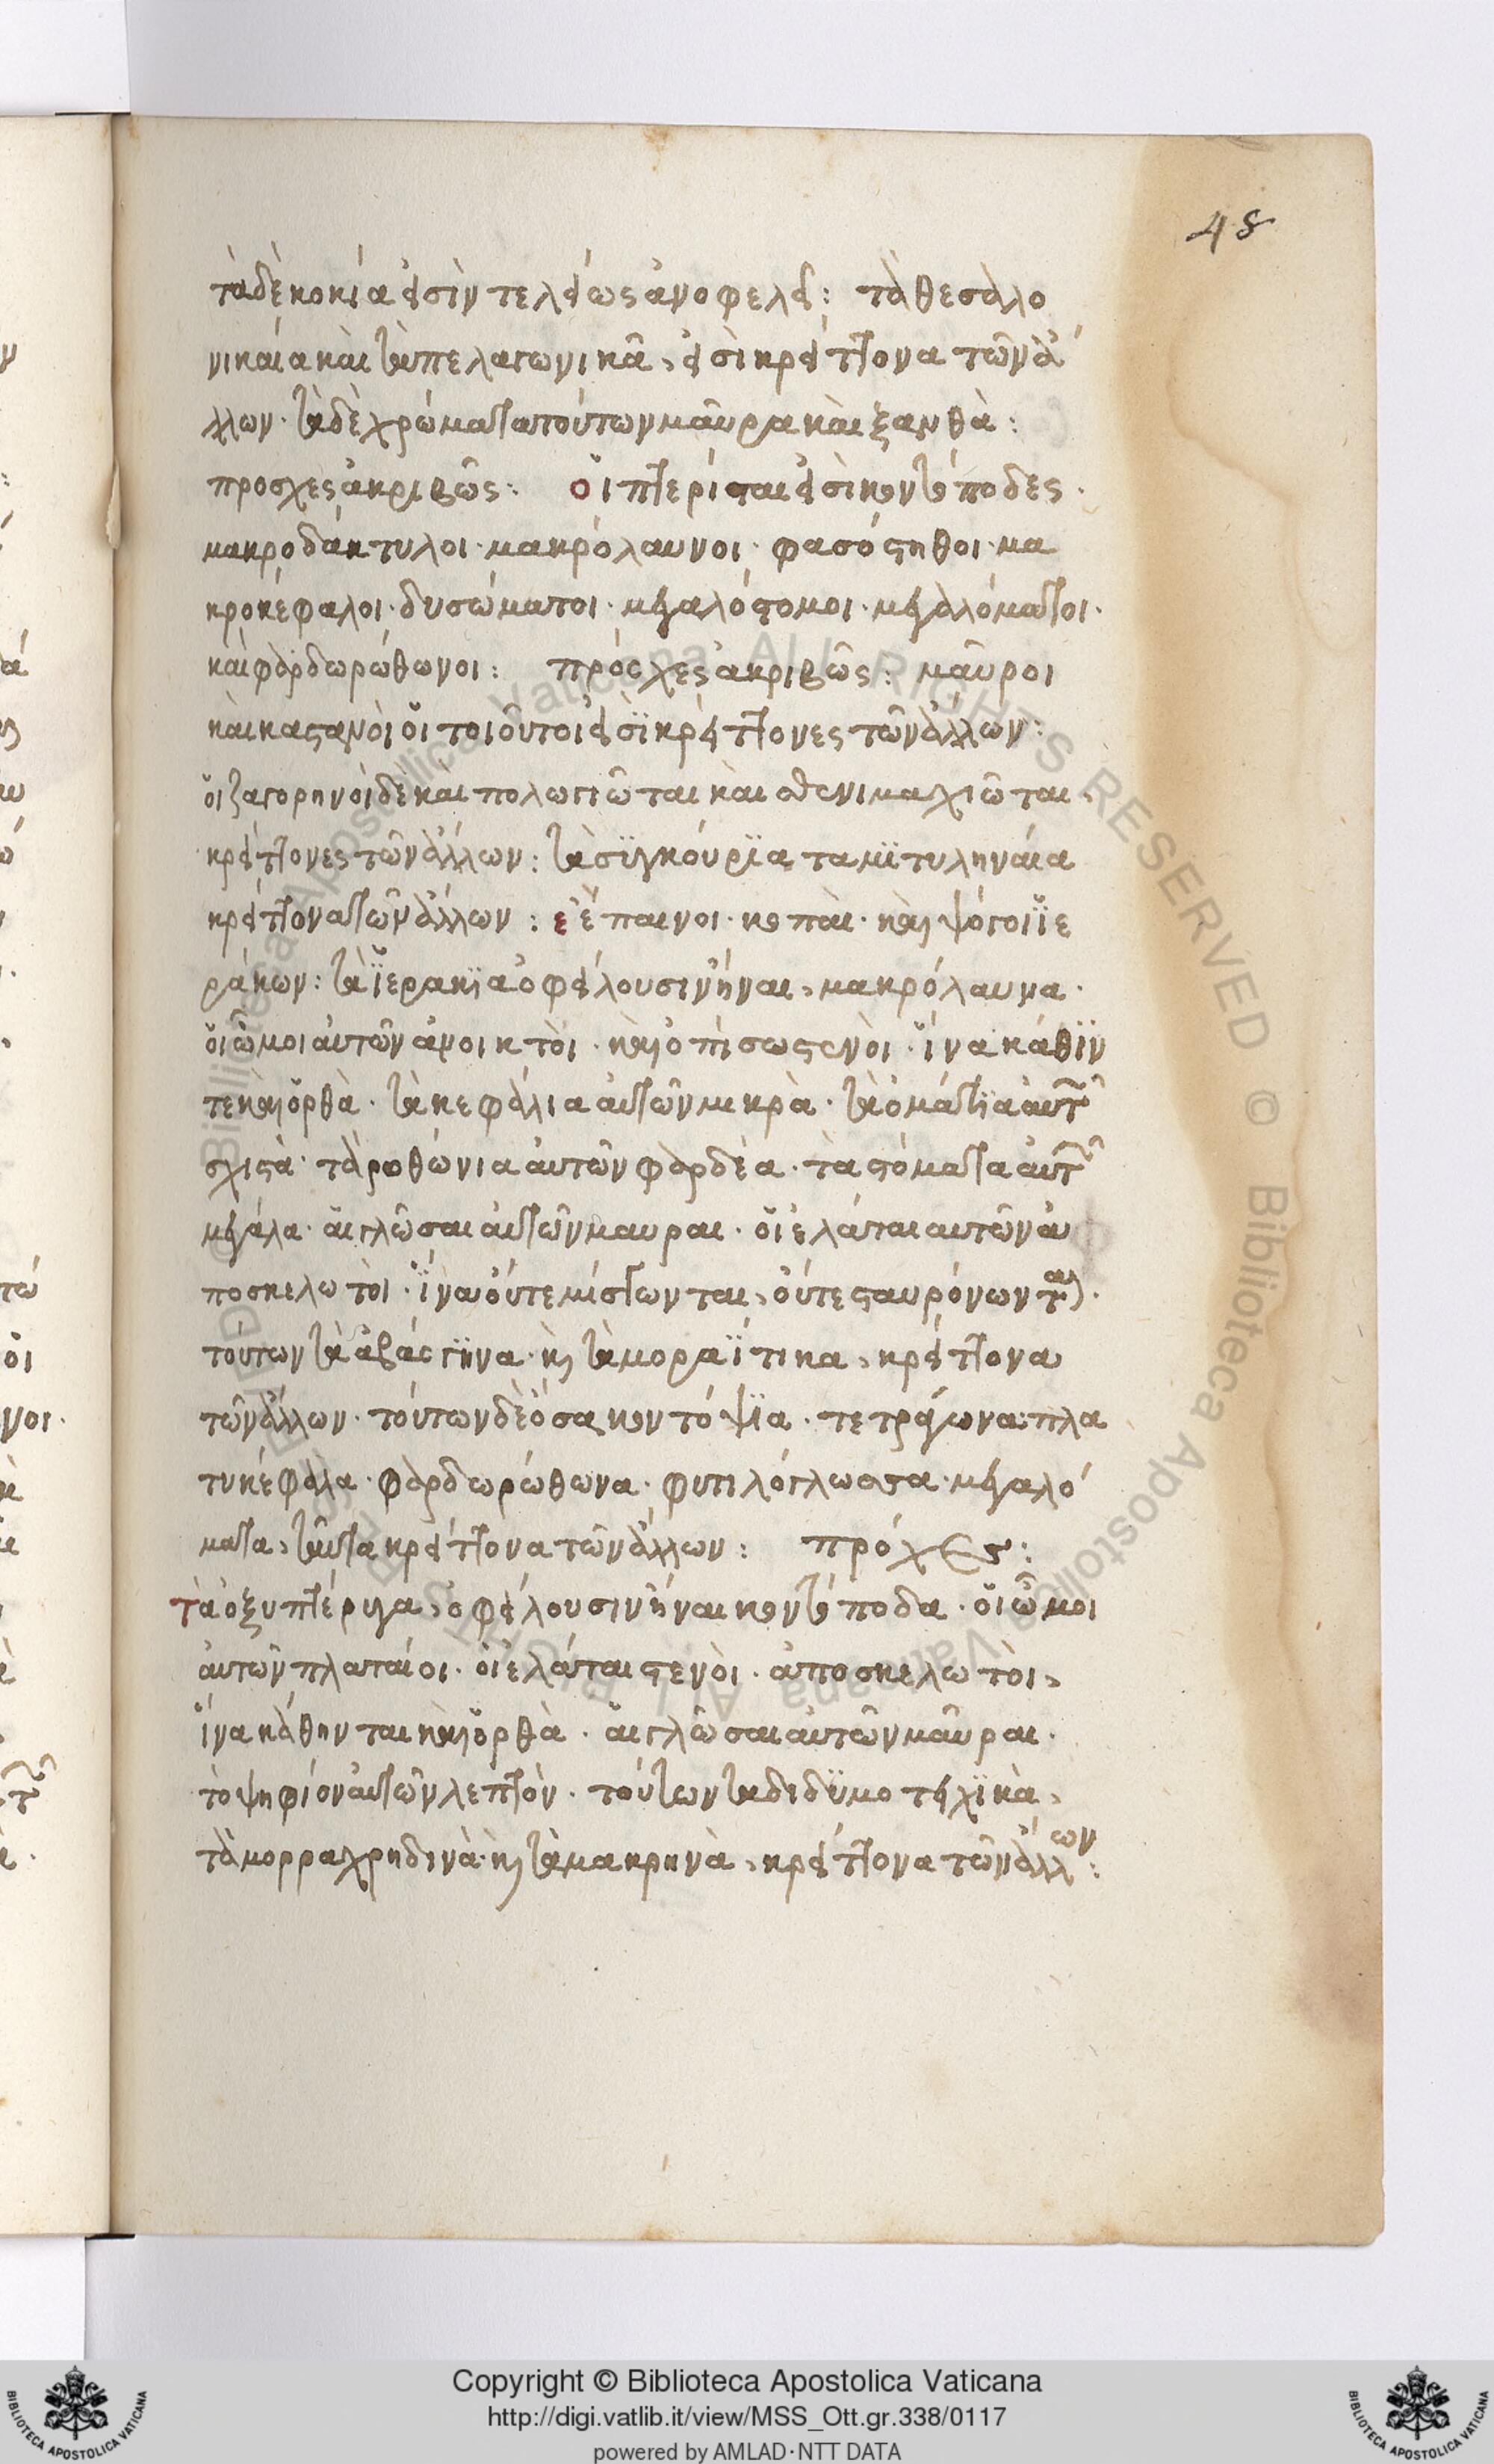 48
τὰ δὲ κοκία εἰσὶν τελείως ἀνοφελεῖ: τὰ θεσαλο
νικαία καὶ τὰ πελαγωνικᾶ, εἰσὶ κρείττονα τῶν ἀ
λλων· τὰ δὲ χρώματα τούτων μαῦρα καὶ ξανθὰ:
προσχὲς ἀκριβῶς: οἵ πτερίται εἰσὶ κοντόποδες·
μακροδάκτυλοι· μακρόλαινοι· φασόστηθοι· μα
κροκέφαλοι· δυσώματοι· μεγαλόστομοι· μεγαλόματοι·
καὶ φαρδωρώθωνοι: πρόσχες ἀκριβῶς: μαῦροι
καὶ καστανοὶ οἵ τοιοῦτοι εἰσὶ κρείττονες τῶν ἄλλων:
οἵ ζαγορηνοὶ δὲ καὶ πολωγιῶται καὶ σθενιμαχιῶται,
κρείττονες τῶν ἄλλων: τὰ σϊγκούρϊα τα μϊτυληναία
κρείττονα τῶν ἄλλων: ἐἔπαινοι· κοπαὶ· καὶ ψόγοι ἵε
ράκων: τὰ ἵερακϊα ὀφείλουσιν ἦναι, μακρόλαινα·
οἵ ὦμοι αὐτῶν ἀνοικτὸι· καὶ ὀπίσω στενὸι· ἵνα κάθϊν
τε καὶ ὄρθὰ· τὰ κεφάλια αὐτῶν μικρὰ· τὰ ὀμάτϊα αὐτῶν
σχιστὰ· τὰ ρωθώνια αὐτῶν φαρδέα· τὰ στόματα αὐτῶν
μεγάλα· αἵ γλῶσαι αὐτῶν μαυραι· οἵ ἐλάται αὐτῶν ἀ
ποσκελωτὸι· ἵνα οὔτε μίστωνται, οὔτε σταυρόνωνται·
τούτων τὰ ἀβάσγϊνα· καὶ τὰ μοραΐτικα, κρείττονα
τῶν ἄλλων· τούτων δὲ ὅσα κοντόψϊα· τετράγωνα· πλα
τυκέφαλα· φαρδωρώθωνα· φυτιλόγλωσσα· μεγαλό
ματα, ταῦτα κρείττονα τῶν ἄλλων: πρόχες:
τὰ ὀξυπτέρυγα, ὀφείλουσιν ἦναι κοντόποδα· οἵ ὦμοι
αὐτῶν πλαταίοι· οἱ ἐλάται στενὸι· ἀποσκελωτὸι,
ἵνα κάθηνται καὶ ὄρθὰ· αἵ γλῶσαι αὐτῶν μαῦραι·
τὸ ψηφίον αὐτῶν λεπτὸν· τούτων τὰ διδϋμοτείχϊκὰ,
τὰ μορραχρηδινὰ· καὶ τὰ μακρηνὰ, κρείττονα τῶν ἄλλων:
Copyright © Biblioteca Apostolica Vaticana
http://digi.vatlib.it/view/MSS_Ott.gr.338/0117
powered by AMLAD·NTT DATA